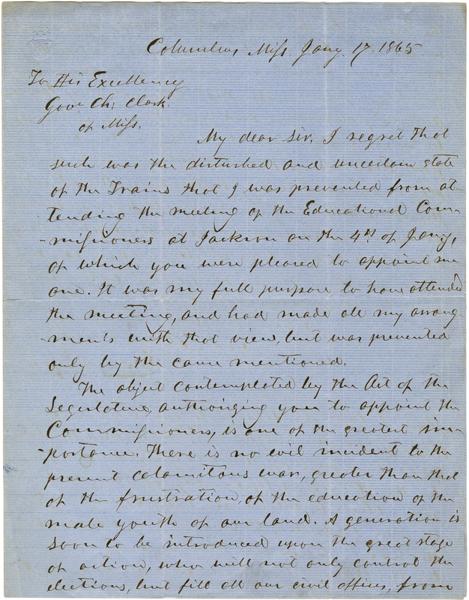 Columbus, Miss Jany. 17 1865
To His Excellency
Gov. Ch: Clark.
of Miss.
My dear Sir. I regret that
such was the disturbed and uncertain state
of the Trains that I was prevented from at
tending the meeting of the Educational Com-
-missioners at Jackson on the 4th of Jany,
of which you were pleased to appoint me
one. It was my full purpose to have attended
the meeting, and had made all my arrang
ments with that view, but was prevented
only by the cause mentioned.
The object contemplated by the Act of the
Legislature, authorizing you to appoint the
Commissioners, is one of the greatest im-
-portance. There is no evil incident to the
present calamitous war, greater than that
of the frustration of the education of the
male youth of our land. A generation is
soon to be introduced upon the great stage
of action, who will not only control the
elections, but fill all our civil offices, from